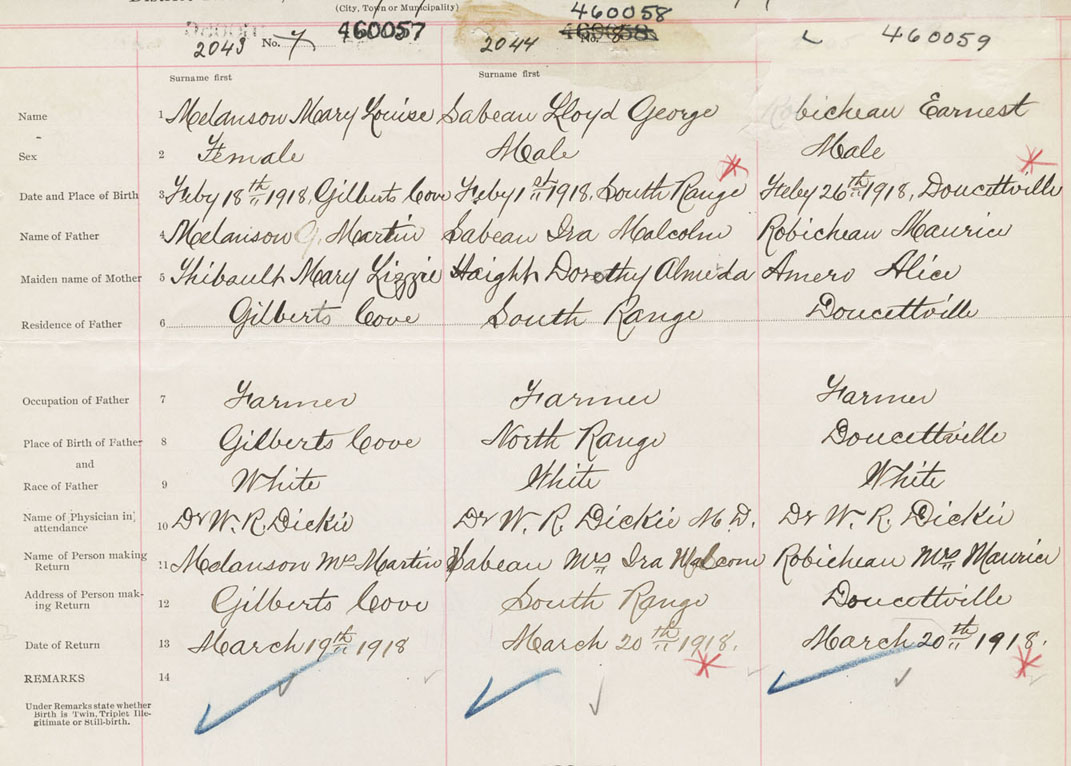 (City, Town or Municipality)
2043 No. 7 460057
2044 No. 460058 460058
460059
Surname first Surname first
Name 1 Melanson Mary Louise Sabean Lloyd George Robicheau Earnest
Sex 2 Female Male Male
Date and Place of Birth 3 Feby 18th 1918, Gilberts Cove Feby 1st 1918, South Range Feby 26th 1918, Doucettville
Name of Father 4 Melanson Martin Sabean Ira Malcolm Robicheau Maurice
Maiden name of Mother 5 Thibault Mary Lizzie Haight Dorothy Almeda Amero Alice
Residence of Father 6 Gilberts Cove South Range Doucettville
Occupation of Father 7 Farmer Farmer Farmer
Place of Birth of Father 8 Gilberts Cove North Range Doucettville
and
Race of Father 9 White White White
Name of Physician in
attendance 10 Dr W. R. Dickie Dr W. R. Dickie M.D. Dr W. R. Dickie
Name of Person making
Return 11 Melanson Mrs Martin Sabean Mrs Ira Malcom Robicheau Mrs Maurice
Address of Person mak-
ing Return 12 Gilberts Cove South Range Doucettville
Date of Return 13 March 19th 1918 March 20th 1918. March 20th 1918.
REMARKS 14
Under Remarks state whether
Birth is Twin, Triplet Ille-
gitimate or Still-birth.